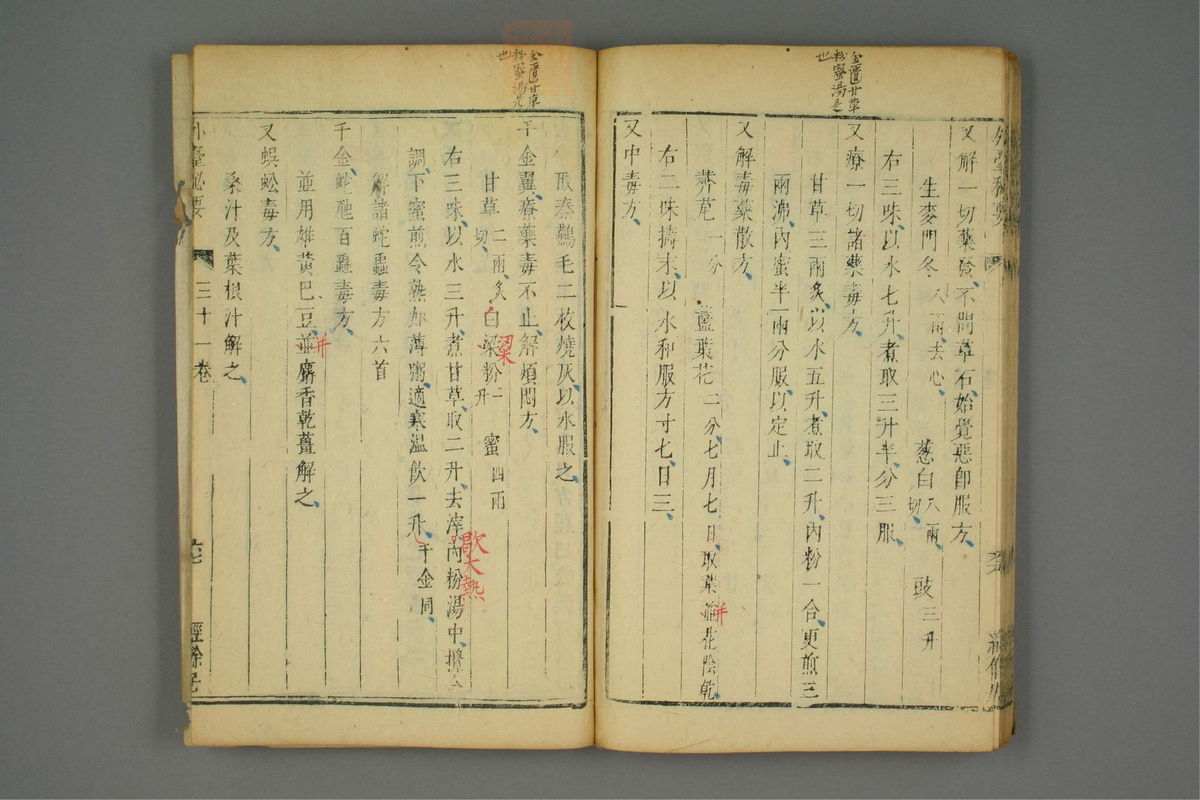 金匱甘草
粉蜜湯是
也
外臺秘要
又解一切藥發、不問草石、始覺惡、即服方、
生麥門冬八兩去心、 葱白八兩切、 豉三升
右三味、以水七升、煮取三升半、分三服、
又療一切諸藥毒方、
甘草三兩炙、以水五升、煮取二升、內粉一合、更煎三
兩沸、內蜜半兩、分服、以定止、
又解毒藥散方、
薺苨一分 藍葉花二分、七月七日、取葉並花陰乾、
并
右二味擣末、以水和服方寸匕、日三、
又中毒方、
金匱甘草
粉蜜湯是
也
取秦鷰毛二枚燒灰、以水服之、
千金翼、療藥毒不止、解煩悶方、
甘草二兩、炙切、 白粱粉一升 蜜四兩
粱
右三味、以水三升、煮甘草、取二升、去滓、內粉湯中、攪令
歇大熱
調、下蜜煎令熟如薄粥、適寒溫飲一升、千金同、
解諸蛇蟲毒方六首
千金、蛇虺百蟲毒方、
並用雄黃巴豆、並麝香乾薑解之、
并
又蜈蚣毒方、
桑汁及葉根汁解之、
外臺秘要 三十一卷 經餘居